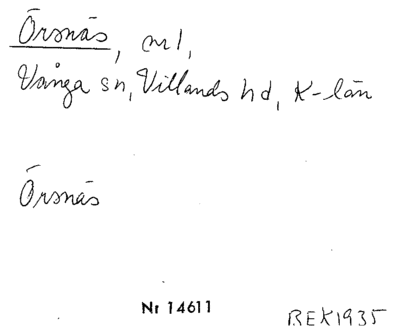 Örsnäs, nr 1,
Vånga sn, Villands hd, K-län
Örsnäs
Nr 14611
BEX1935